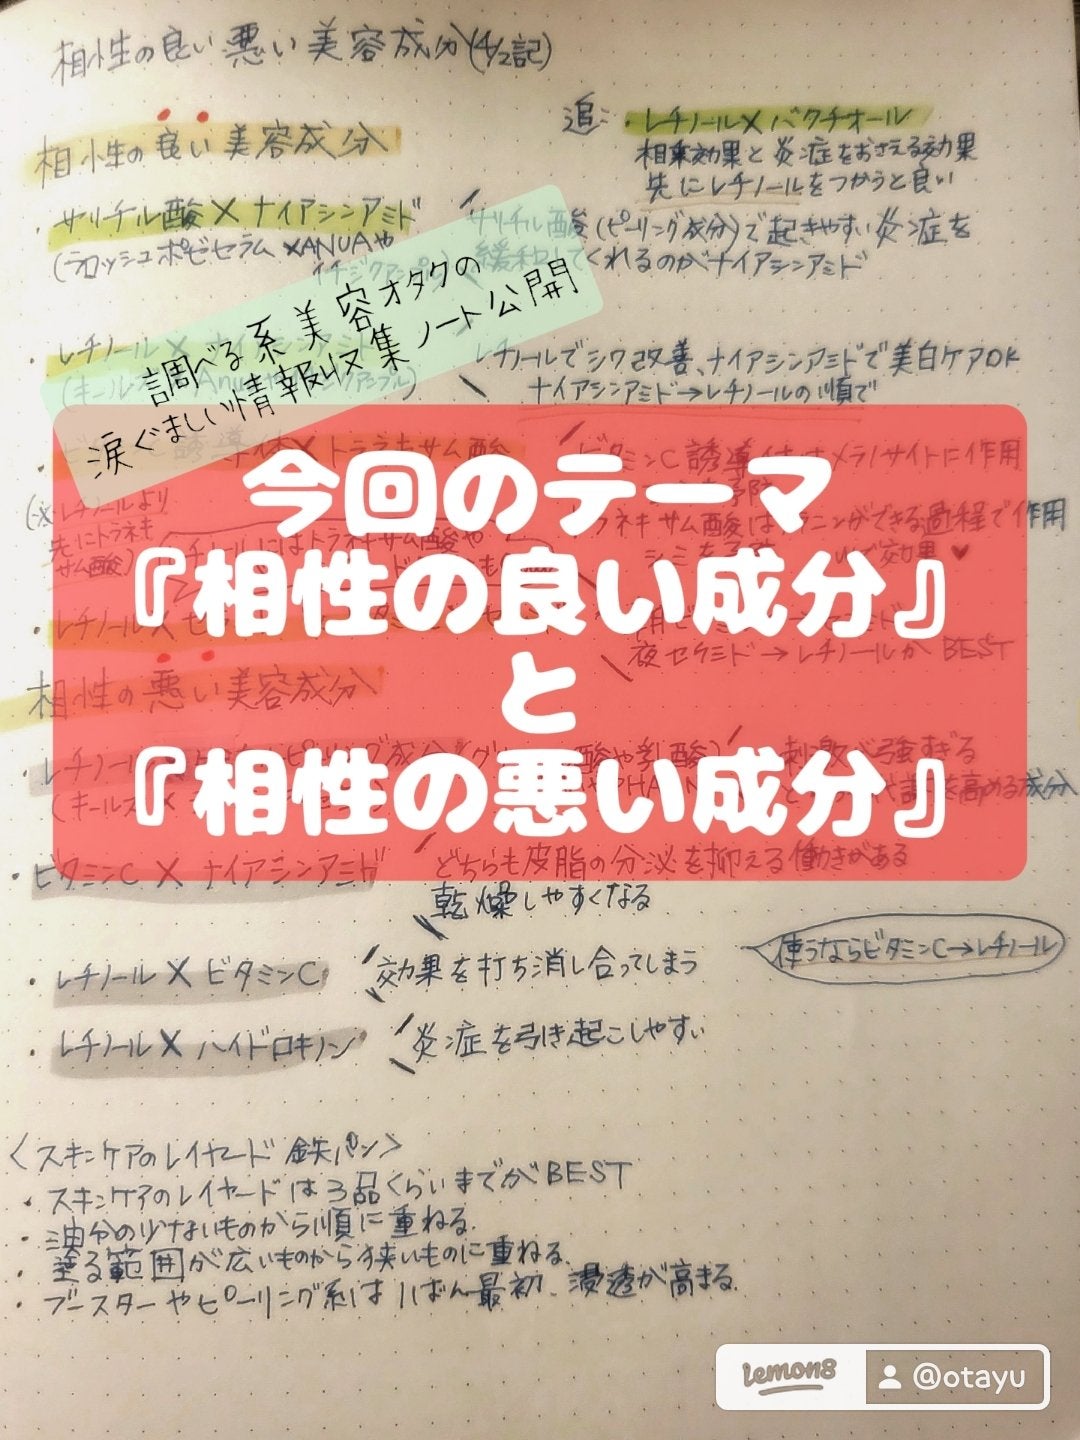 相性の良い悪い美容成分(4/2記)
相性の良い美容成分
追:・レチノール×バクチオール
相乗効果と炎症をおさえる効果
先にレチノールをつかうと良い
・サリチル酸×ナイアシンアミド
(ラロッシュポゼセラム×ANUAや
サリチル酸(ピーリング成分)で起きやすい炎症を
緩和してくれるのがナイアシンアミド
調べる系美容オタクの
涙ぐましい情報収集ノート公開
レチノールでシワ改善、ナイアシンアミドで美白ケアOK
ナイアシンアミド→レチノールの順で
今回のテーマ
『相性の良い成分』
と
『相性の悪い成分』
ビタミンC誘導体×トラネキサム酸
(※レチノールより
先にトラネキ
サム酸)
メラノサイトに作用
トラネキサム酸は
ができる過程で作用
効果♥
夜セラミド→レチノールがBEST
相性の悪い美容成分
刺激が強すぎる
を高める成分
・ビタミンC×ナイアシンアミド
どちらも皮脂の分泌を抑える働きがある
乾燥しやすくなる
・レチノール×ビタミンC
効果を打ち消し合ってしまう
使うならビタミンC→レチノール
・レチノール×ハイドロキノン
炎症を引き起こしやすい
〈スキンケアのレイヤード 鉄パン〉
・スキンケアのレイヤードは3品くらいまでがBEST
・油分の少ないものから順に重ねる
・塗る範囲が広いものから狭いものに重ねる
・ブースターやピーリング系は1ばん最初、浸透が高まる
lemon8
@otayu